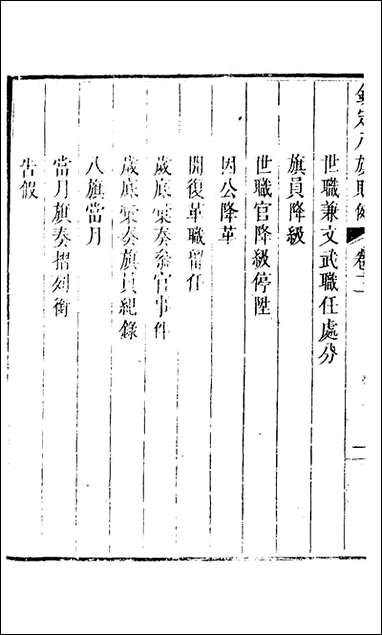 欽定八旗則例 卷二
世職兼文武職任處分
旗員降級
世職官降級停陞
因公降革
開復革職留任
歲底彙奏叅官事件
歲底彙奏旗員紀錄
八旗當月
當月旗奏摺列銜
告假